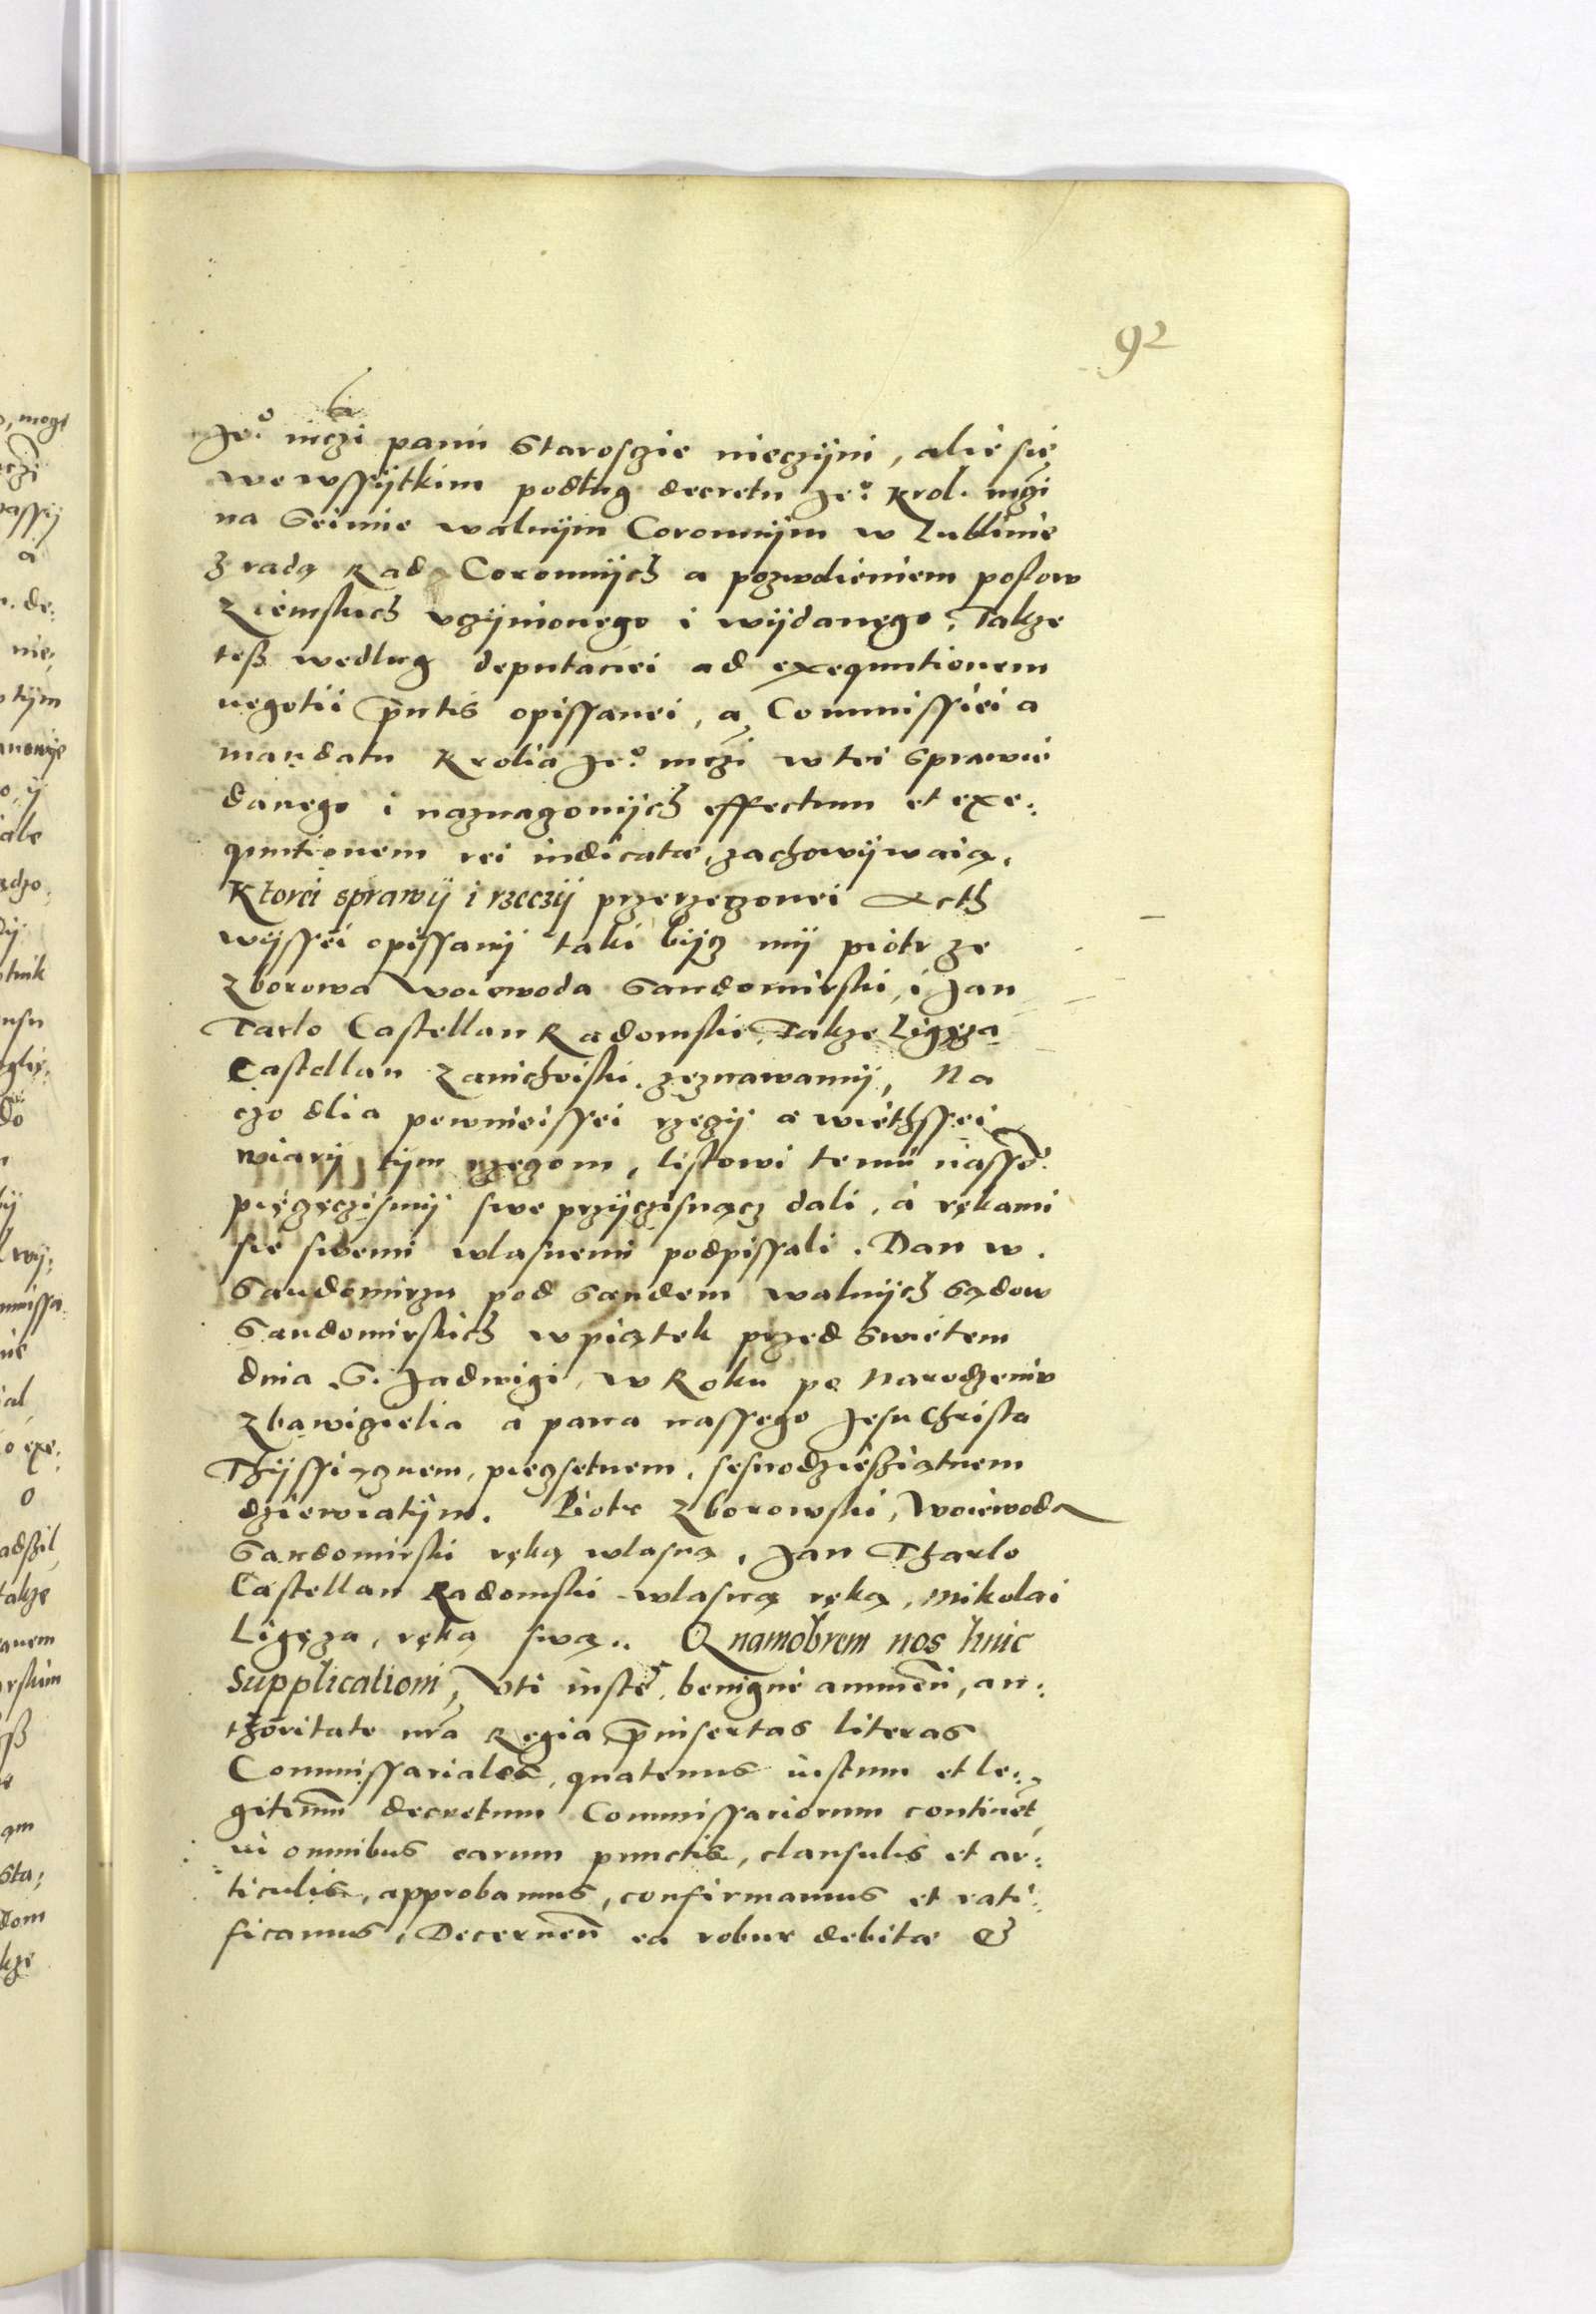 92
Je:º mczi panu Starosczie nieczÿni, alie się
we wssÿtkim podług decretu Je:º Krol. mczi
na Seimie walnÿm Coronnÿm w Lublinie
z radą Rad Coronnÿch a pozwolieniem posłow
Ziemskich vczÿnionego i wÿdanego, Takze
tesz według deputaciei ad exequutionem
negotii pñtis opissanei, a Commissiei a
mandatu Krolia Je:º mczi w tei sprawie
danego i naznaczonÿch effectum et exe:
quutionem rei iudicatæ, zachowÿwaią.
Ktorei sprawÿ i rzeczÿ przerzeczonei Acth
wÿssei opissanÿ taki bÿcz mÿ piotr ze
Zborowa Woiewoda Sandomirski, i Jan
Tarlo Castellan Radomski, Takze Ligęza
Castellan Zawichoiski zeznawamÿ, Na
czo dlia pewnieissei rzeczÿ a wiethssei
wiarÿ tÿm rzeczom, listowi temu nasse:º
pięczęczismÿ swe przÿczisnącz dali, a rękami
sie swemi wlasnemi podpissali. Dan w
Sandomirzu pod Sandem walnÿch Sądow
Sandomirskich w piątek przed Swietem
dnia S. Jadwigi, w Roku po Narodzeniv
Zbawiczielia a pana nassego Jesu Christa
Thÿssiącznem, pieczsetnem, sesnodziesziątnem
dziewiatÿm. Piotr Zborowski, Woiewoda
Sandomirski ręką wlasną, Jan Tharlo
Castellan Radomski wlasną ręką, Mikolai
Ligęza, ręką swą.. Quamobrem nos huic
Supplicationi, vti iustę, benigne annuen̄, au:
thoritate nr̃a Regia p̃insertas literas
Commissariales, quatenus iustum et le:
gitimũ decretum Commissariorum continet,
in omnibus earum punctis, clausulis et ar:
ticulis, approbamus, confirmamus et rati:
ficamus, Decernen̄ ea robur debitæ &